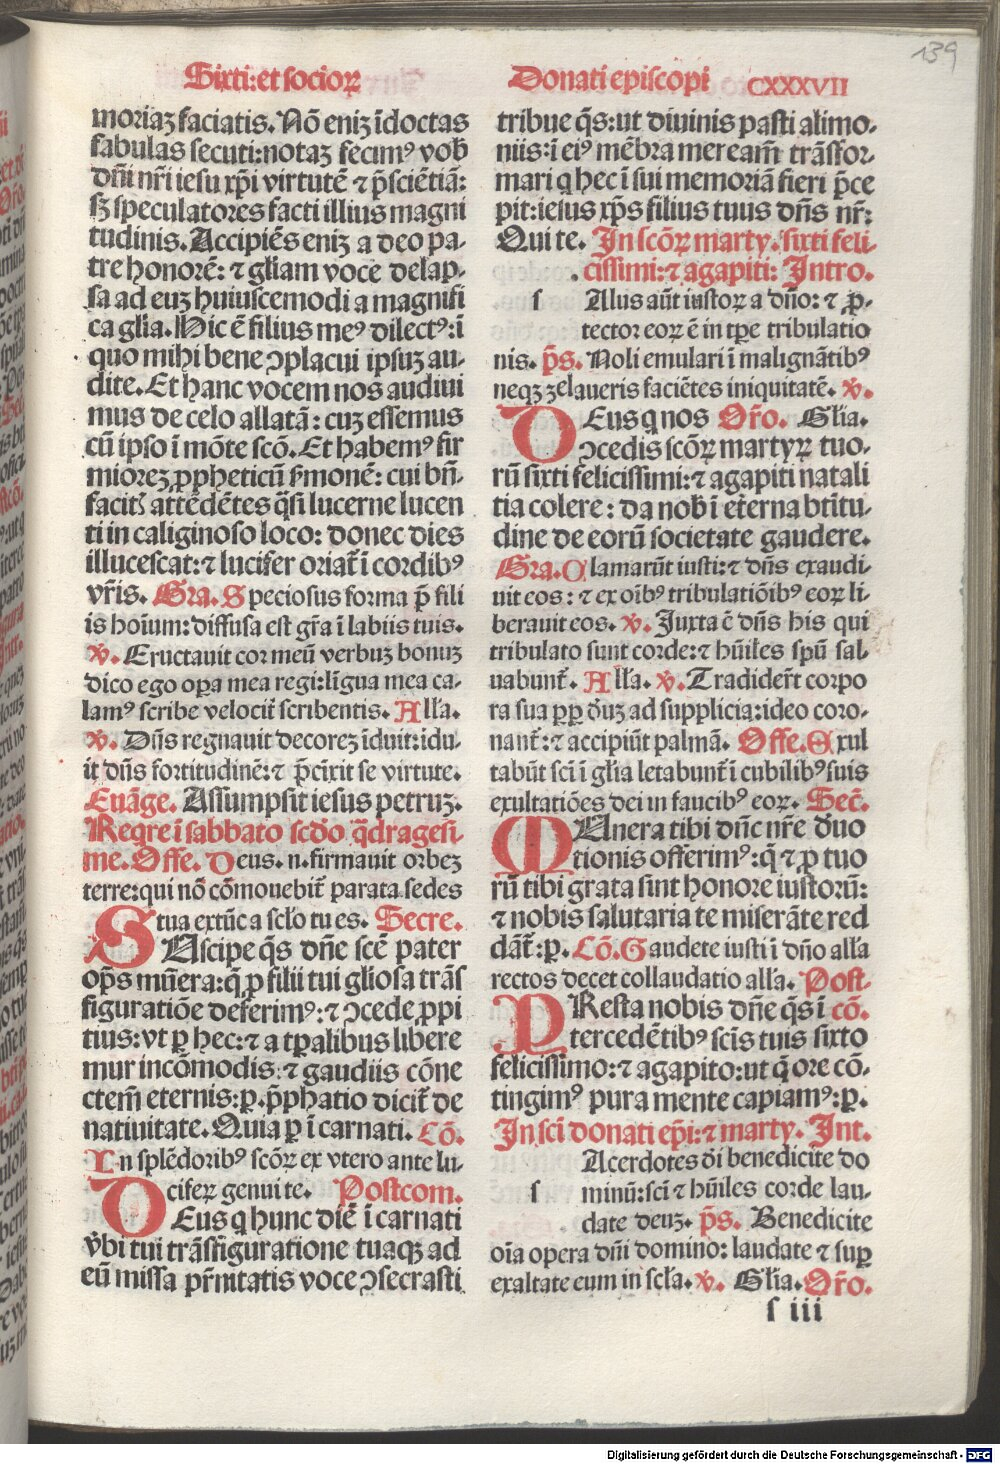 139
Sixti: et socioꝝ
Donati episcopi CXXXVII
moriaꝫ faciatis. Nō eniꝫ īdoctas
fabulas secuti: notaꝫ fecimꝰ vob̄
dn̄i nr̄i iesu xp̄i virtutē ⁊ p̄sciētiā:
sꝫ speculatores facti illius magni
tudinis. Accipiēs eniꝫ a deo pa-
tre honorē: ⁊ gl̄iam voce delap-
sa ad euꝫ huiuscemodi a magnifi
ca gl̄ia. Hic ē filius meꝰ dilectꝰ: ī
quo mihi bene ꝯplacui ipsuꝫ au-
dite. Et hanc vocem nos audiui
mus de celo allatā: cuꝫ essemus
cū ipso ī mōte scō. Et habemꝰ fir
mioreꝫ ꝓpheticū ẜmonē: cui bn̄.
facitꝭ attēdētes q̄si lucerne lucen
ti in caliginoso loco: donec dies
illucescat: ⁊ lucifer oriat̄ ī cordibꝰ
vr̄is. Gra. Speciosus forma p̄ fili
is hoīum: diffusa est gr̄a ī labiis tuis.
℣. Eructauit cor meū verbuꝫ bonuꝫ
dico ego oꝑa mea regi: līgua mea ca-
lamꝰ scribe velocit̄ scribentis. All'a.
℣. Dn̄s regnauit decoreꝫ īduit: īdu-
it dn̄s fortitudinē: ⁊ p̄cixit se virtute.
Euāge. Assumpsit iesus petruꝫ.
Regre ī sabbato scd̄o q̄dragesi
me. Offe. Deus. n. firmauit orbeꝫ
terre: qui nō cōmouebit̄ parata sedes
tua extūc a scl̄o tu es. Secre.
SUscipe q̄s dn̄e scē pater
op̄s mūera: q̄ ꝓ filii tui gl̄iosa trās
figuratiōe deferimꝰ: ⁊ ꝯcede ꝓpi
tius: vt ꝑ hec: ⁊ a tꝑalibus libere
mur incōmodis: ⁊ gaudiis cōne
ctem̄ eternis: ꝑ. p̄phatio dicit̄ de
natiuitate. Quia ꝑ ī carnati. Cō.
In splēdoribꝰ scōꝝ ex vtero ante lu-
ciferꝝ genui te. Postcom.
DEus q hunc diē ī carnati
v̄bi tui trāsfiguratione tuaqꝫ ad
eū missa pr̄nitatis voce ꝯsecrasti
tribue q̄s: ut diuinis pasti alimo-
niis: ī eiꝰ mēbra meream̄ trāsfor-
mari q hec ī sui memoriā fieri p̄ce
pit: iesus xp̄s filius tuus dn̄s nr̄:
Qui te. In scōꝝ marty. sixti feli-
cissimi: ⁊ agapiti: Intro.
sAlus aūt iustoꝝ a dn̄o: ⁊ ꝓ-
tector eoꝝ ē in tꝑe tribulatio
nis. p̄s. Noli emulari ī malignātibꝰ
neqꝫ zelaueris faciētes iniquitatē. ℣.
DEus q nos Or̄o. Gl̄ia.
ꝯcedis scōꝝ martyꝝ tuo-
rū sixti felicissimi: ⁊ agapiti natali
tia colere: da nob̄ ī eterna btītu-
dine de eorū societate gaudere.
Gra. Clamarūt iusti: ⁊ dn̄s exaudi-
uit eos: ⁊ ex oībꝰ tribulatiōibꝰ eoꝝ li-
berauit eos. ℣. Juxta ē dn̄s his qui
tribulato sunt corde: ⁊ hūiles spū sal-
uabunt̄. All'a. ℣. Tradider̄t corpo
ra sua ꝓpꝑ deuꝫ ad supplicia: ideo coro-
nant̄: ⁊ accipiūt palmā. Offe. Exul
tabūt scī ī gl̄ia letabunt̄ ī cubilibꝰ suis
exultatiōes dei in faucibꝰ eoꝝ. Sec̄.
MUnera tibi dn̄e nr̄e deuo
tionis offerimꝰ: q̄ ⁊ ꝓ tuo
rū tibi grata sint honore iustorū:
⁊ nobis salutaria te miserāte red
dāt̄: ꝑ. Cō. Gaudete iusti ī dn̄o all'a
rectos decet collaudatio all'a. Post-
PResta nobis dn̄e q̄s ī cō.
tercedētibꝰ scīs tuis sixto
felicissimo: ⁊ agapito: ut q̄ ore cō-
tingimꝰ pura mente capiamꝰ: ꝑ.
In scī donati ep̄i: ⁊ marty. Int.
sAcerdotes dei benedicite do
minū: scī ⁊ hūiles corde lau-
date deuꝫ. p̄s. Benedicite
oīa opera dn̄i domino: laudate ⁊ suꝑ
exaltate eum in scl̄a. ℣. Gl̄ia. Or̄o.
s iii
Digitalisierung gefördert durch die Deutsche Forschungsgemeinschaft - DFG